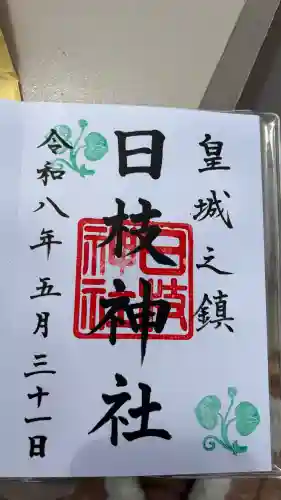 皇城之鎮
日枝神社
令和八年五月三十一日
日枝神社